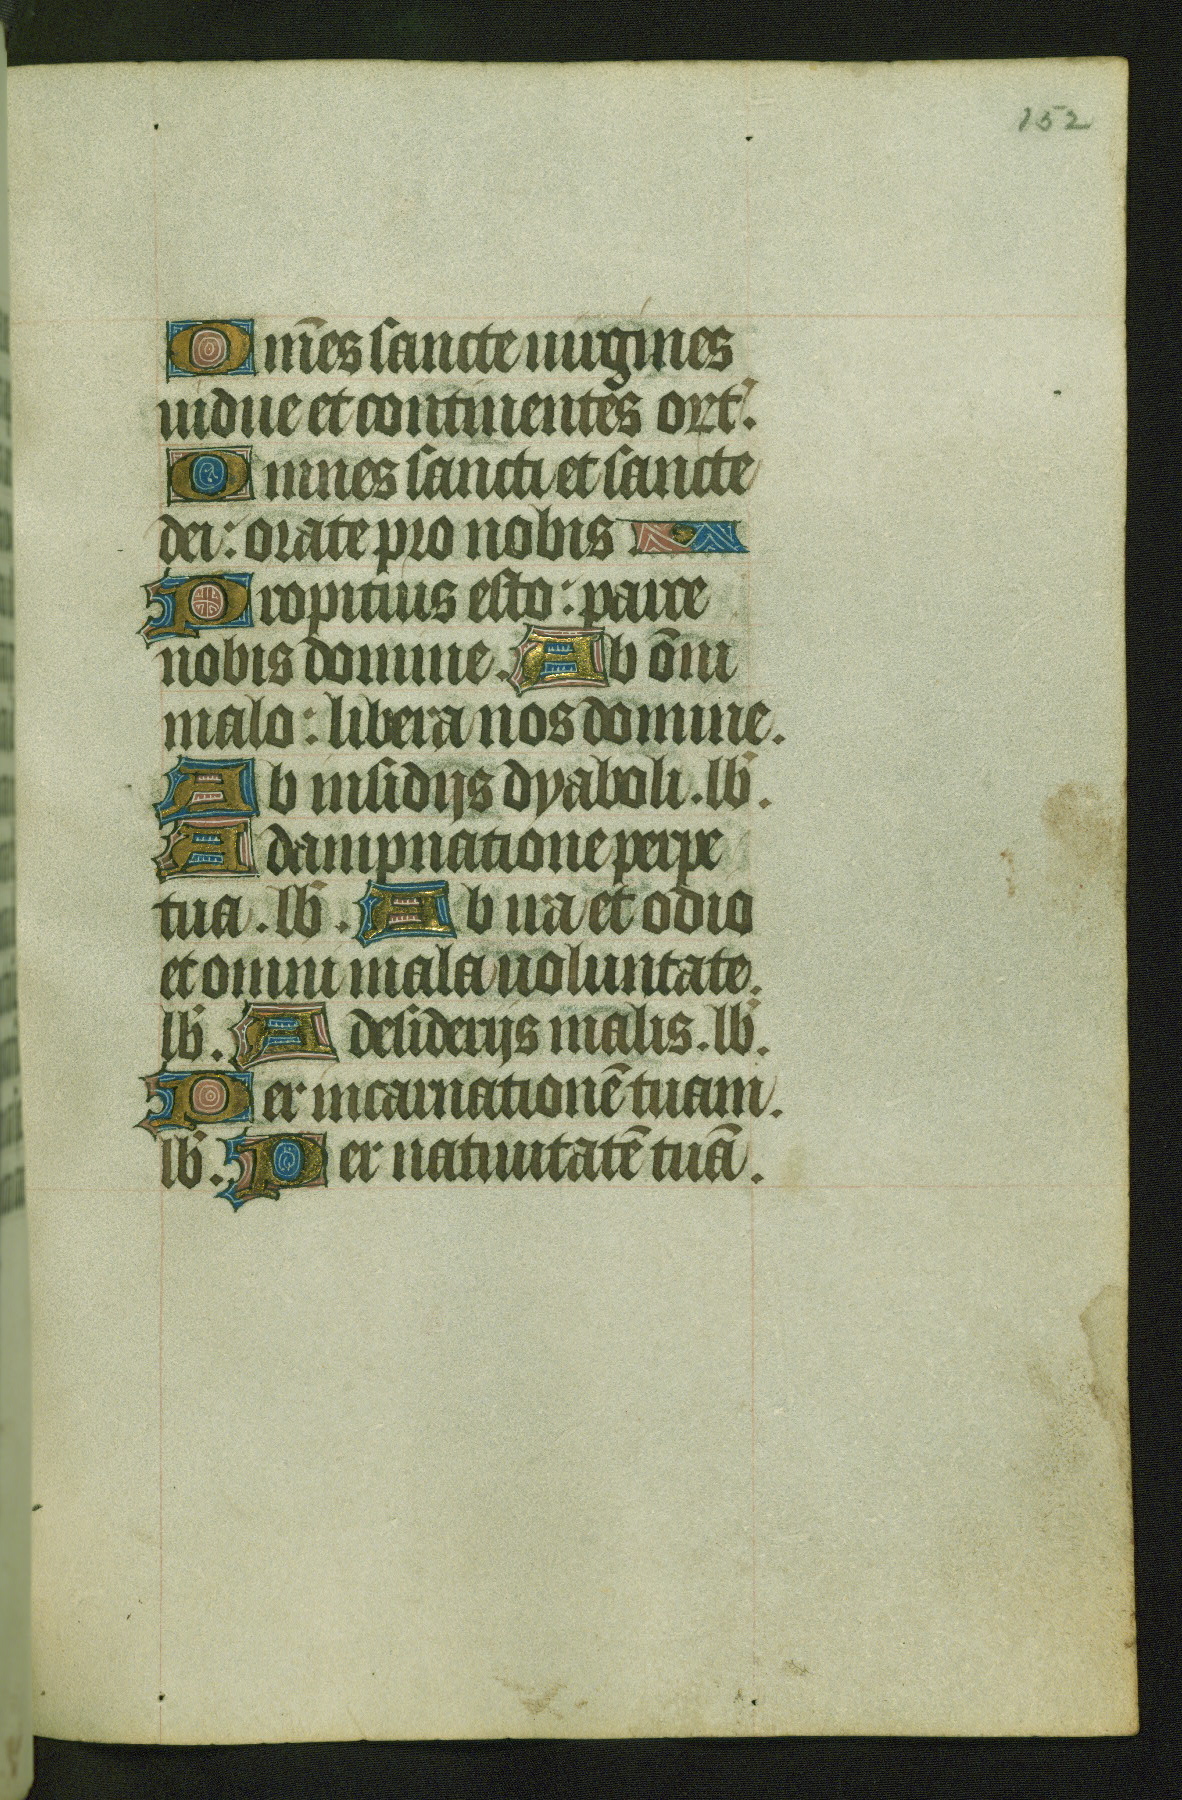 152
Om̄es sancte uirgines
uidue et continentes ort̄.
Omnes sancti et sancte
dei: orate pro nobis
Propitius esto: parce
nobis domine. Ab om̄i
malo: libera nos domine.
Ab insidijs dyaboli. lb̄.
A dampnatione perpe
tua. lb̄. Ab ira et odio
et omni mala uoluntate.
lb̄. A desiderijs malis. lb̄.
Per incarnationē tuam.
lb̄. Per natiuitatē tuā.